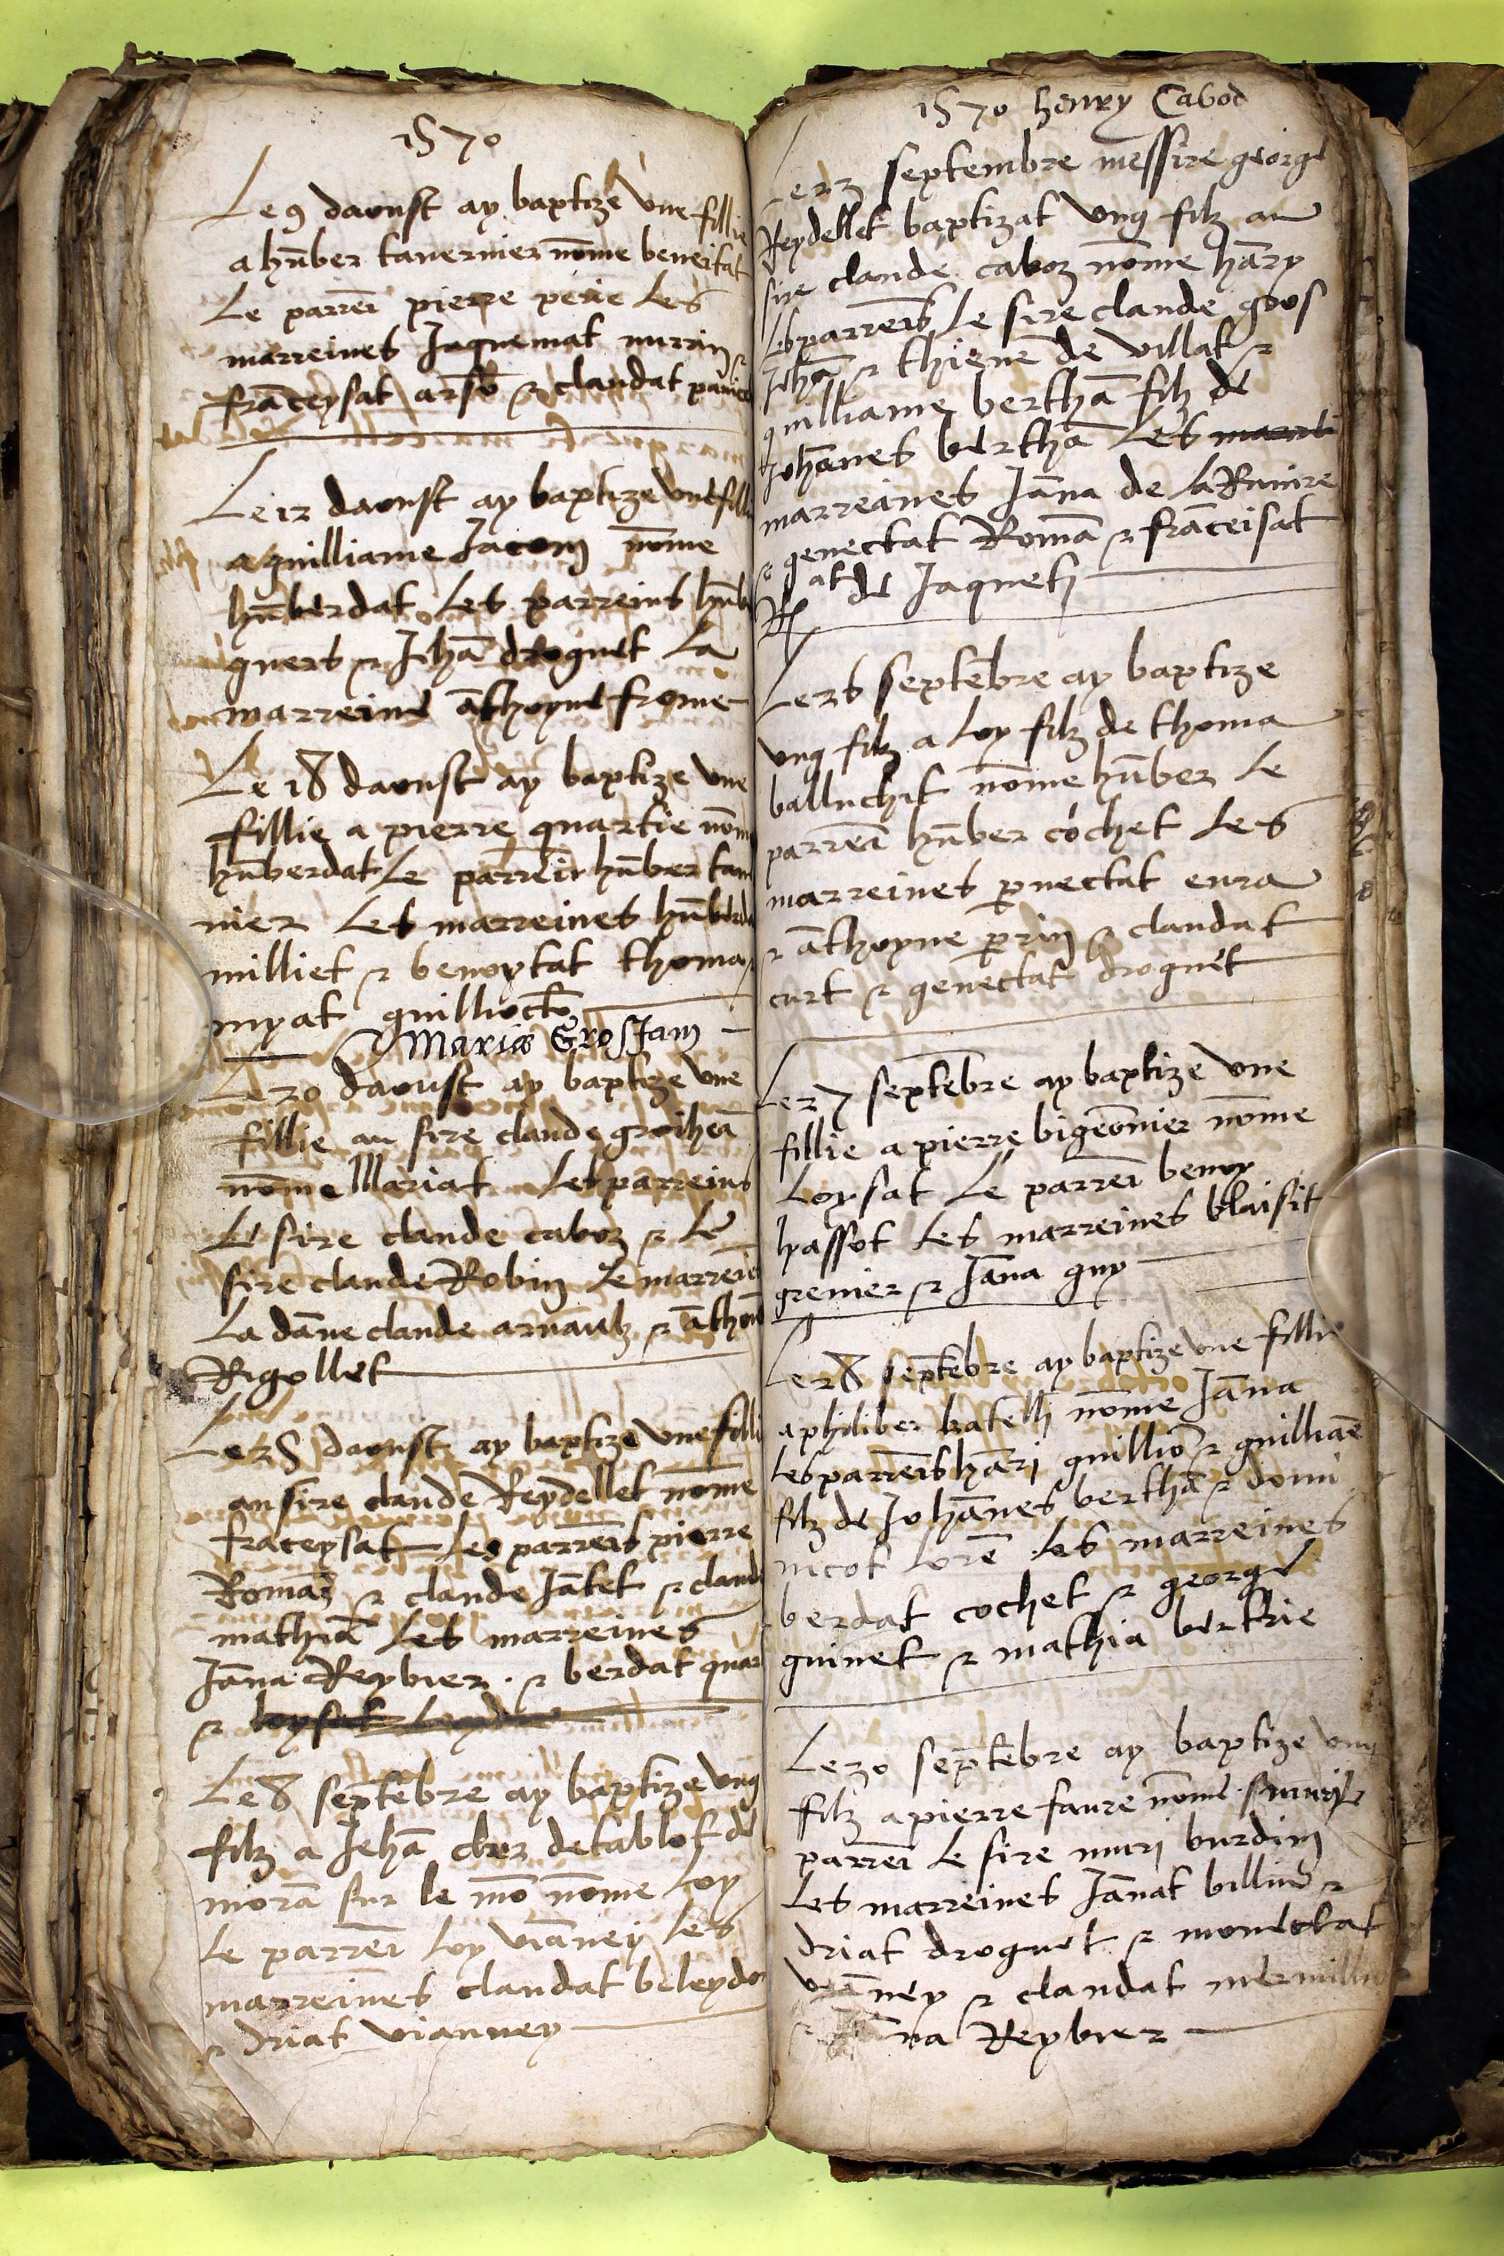 1570
Le 9 daoust ay baptize une fillie
a hūber tavernier nōme beneitat
Le parreī pierre perie Les
marreines Jaquemat
frāceysat arso & claudat
Le 12 daoust ay baptize une fillie
a guilliame Jacom nōme
hūberdat Les parreins hūb
quers & Jehā droguet La
marreine āthoyne frome
Le 18 daoust ay baptize une
fillie a pierre quartie nōme
hūberdat Le parreir hūber tav
nier Les marreines hūberda
milliet & benoytat thomas
myat guilliocto
Maria GrosJam
Le 20 daoust ay baptize une
fillie au sire claude groiheā
nōme Mariat Les parreins
Le sire claude caboz & Le
sire claude Robin Le marreine
La dāne claude arnaulz & āthoine
Rigollet
Le 25 daoust ay baptize une filli
au sire claude Reydellet nōme
fraceysat Les parreīs pierre
Romāz & claude Jātet & claude
mathiā Les marreines
Jāna Reybier . & berdat quar
&
Le 8 septēbre ay baptize ung
filz a Jehā de tablot de
morā sur le mō nōme Loy
Le parreī Loy viāney Les
marreines claudat beleydor
& driat vianney
1570 henry Cabod
Le 23 septembre messire george
Reydellet baptizat ung filz au
sire claude caboz nōme hāry
Les parreīs Le sire claude goos
Jehā & thiene de villat &
guilliame berthā filz de
Johānes berthā Les marrei
marreines Jāna de LaRuire
& genectat Romā & frāceisat
at de Jaqueti
Le 26 septēbre ay baptize
ung filz a Loy filz de thoma
balluchit nōme hūber Le
parreī hūber cochet Les
marreines pnectat eura
& āthoyne prin & claudat
curt & genectat droguet
Le 27 septēbre ay baptize une
fillie a pierre bigeōnier nōme
Loysat Le parreī benoy
hassot Les marreines blaisit
grenier & Jāna guy
Le 28 septēbre ay baptize une filli
a philiber batelli nōme Jāna
Les parreīs hāri guilliō & guilliāe
filz de Johānes berthā & domi
nicot Lorē Les marreines
berdat cochet & george
guinet & mathia bertrie
Le 30 septēbre ay baptize ung
filz a pierre faure nōme
parreī Le sire muri burdin
Les marreines Jānat billiud &
driat droguet & monectat
viāney & claudat mermillie
& Jāna Reybier